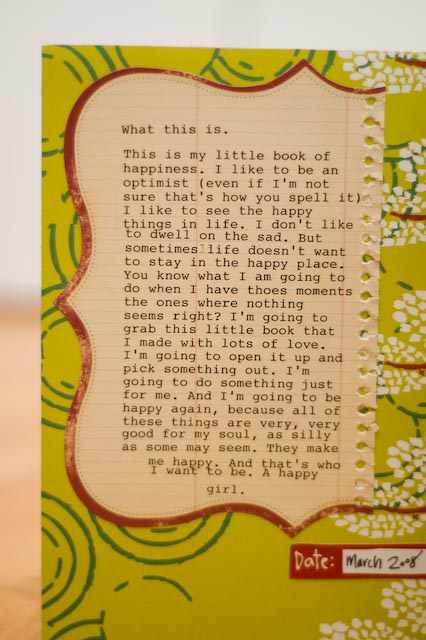 What this is.
This is my little book of
happiness. I like to be an
optimist (even if I'm not
sure that's how you spell it)
I like to see the happy
things in life. I don't like
to dwell on the sad. But
sometimes life doesn't want
to stay in the happy place.
You know what I am going to
do when I have thoes moments
the ones where nothing
seems right? I'm going to
grab this little book that
I made with lots of love.
I'm going to open it up and
pick something out. I'm
going to do something just
for me. And I'm going to be
happy again, because all of
these things are very, very
good for my soul, as silly
as some may seem. They make
me happy. And that's who
I want to be. A happy
girl.
Date: March 2008